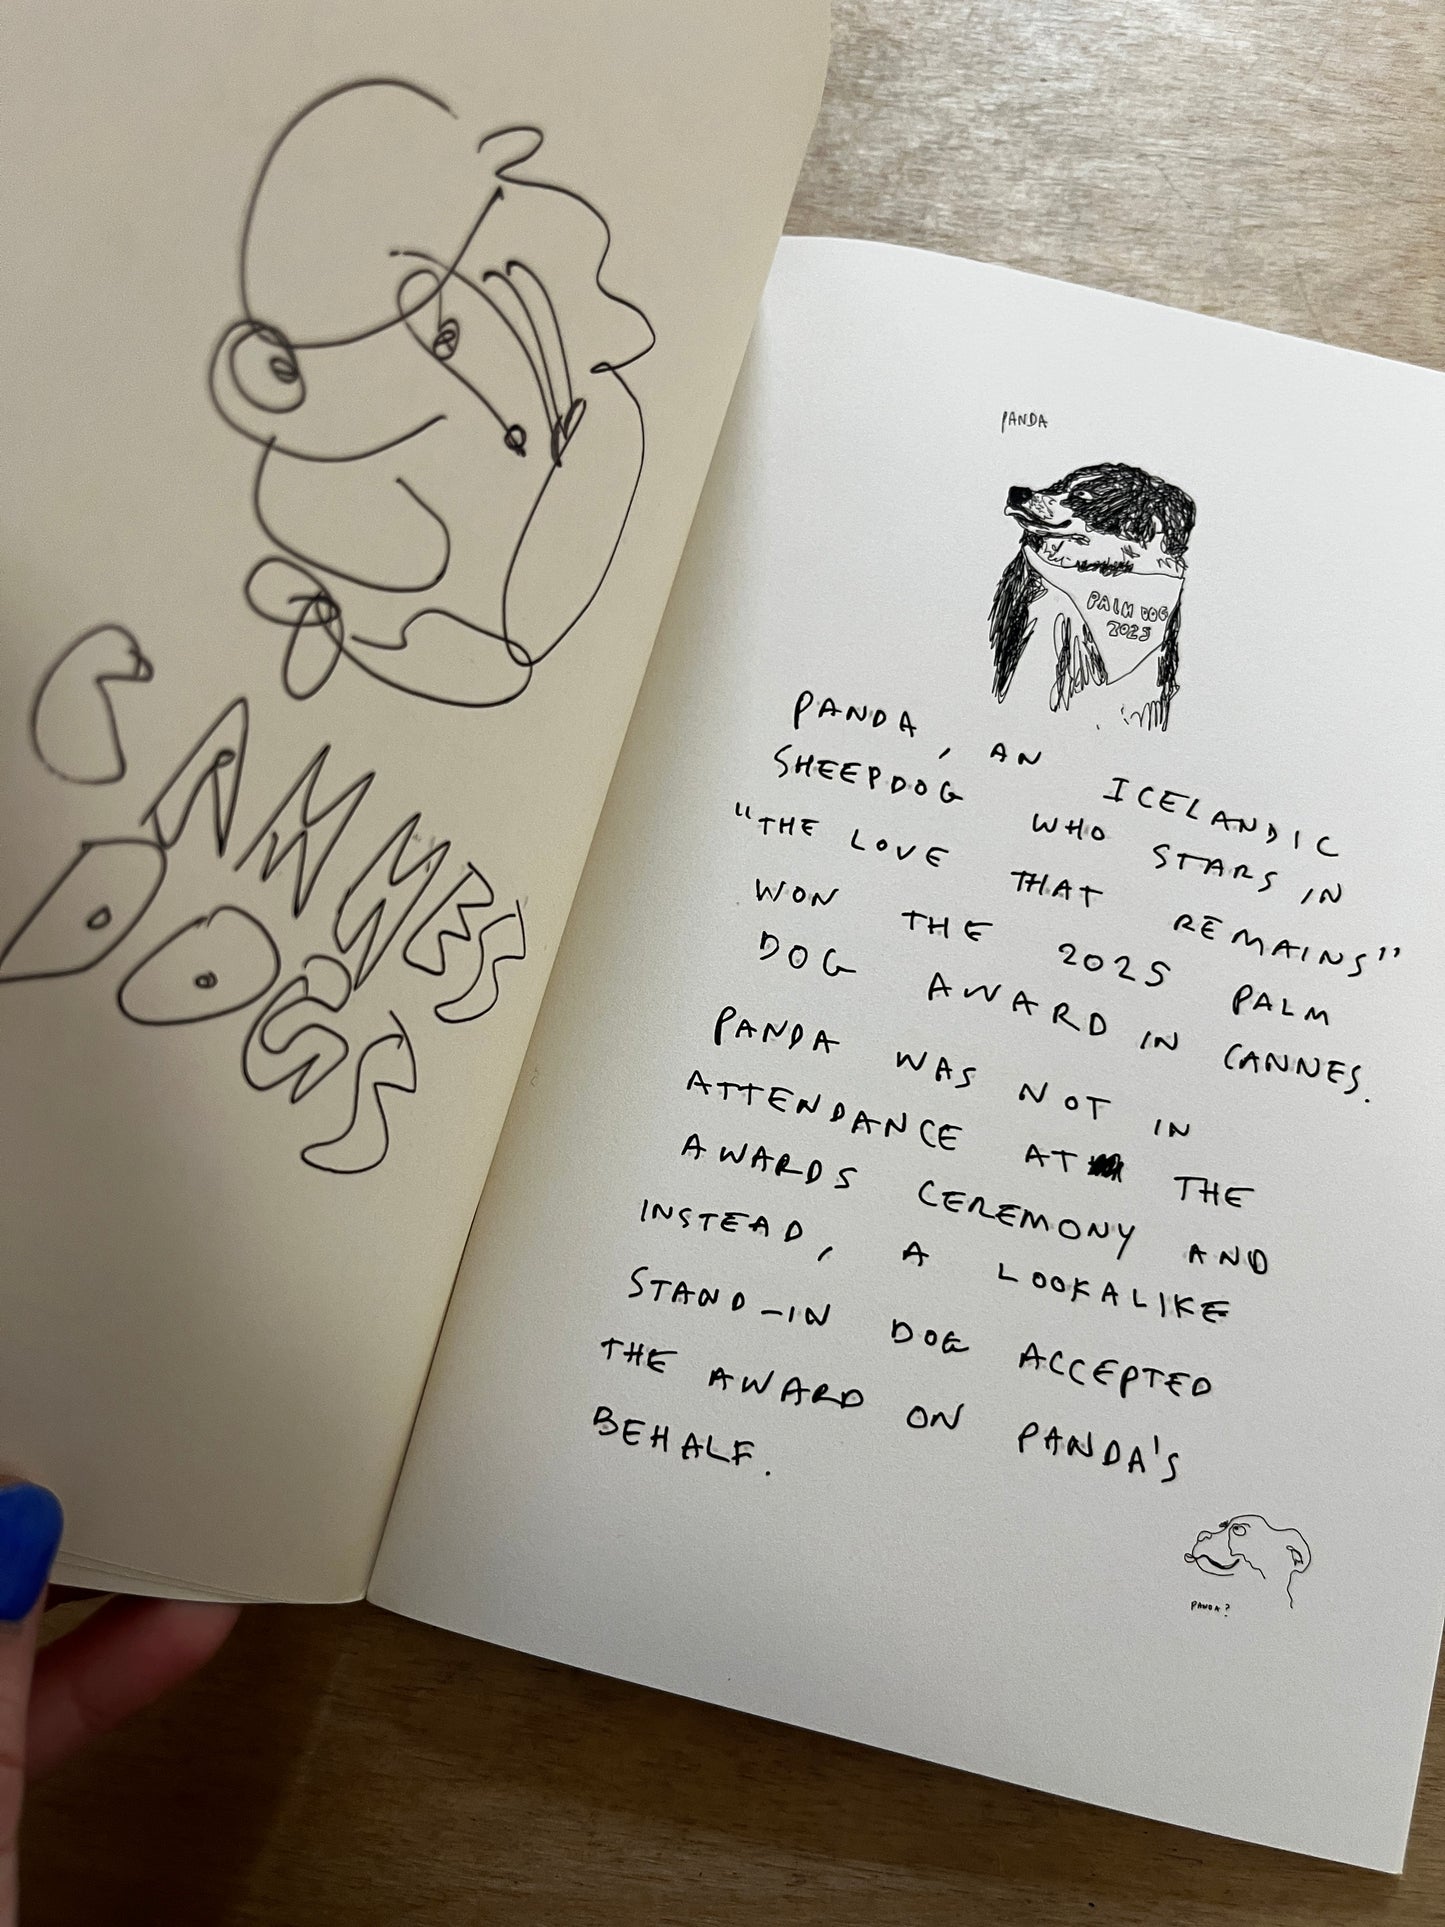 CAMMES
DOGS
PANDA
PALM DOG
2025
PANDA, AN ICELANDIC
SHEEPDOG WHO STARS IN
"THE LOVE THAT REMAINS"
WON THE 2025 PALM
DOG AWARD IN CANNES.
PANDA WAS NOT IN
ATTENDANCE AT THE
AWARDS CEREMONY AND
INSTEAD, A LOOKALIKE
STAND-IN DOG ACCEPTED
THE AWARD ON PANDA'S
BEHALF.
PANDA?